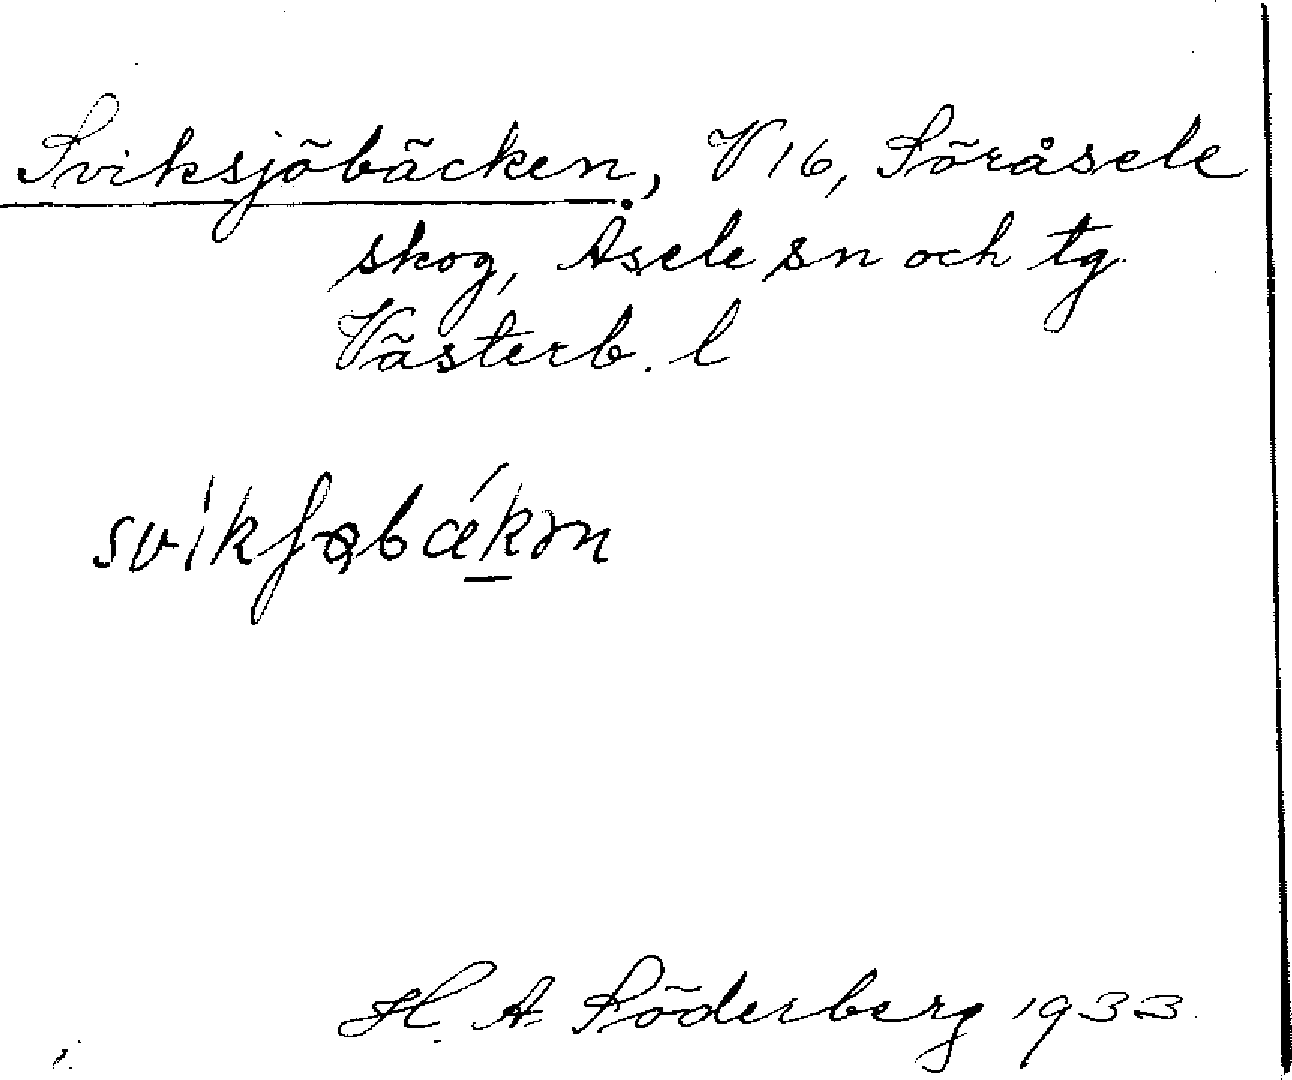 Sviksjöbäcken, V16, Söråsele
skog, Åsele sn och tg
Västerb. l
svikʃǫbákən
H. A. Söderberg 1933.